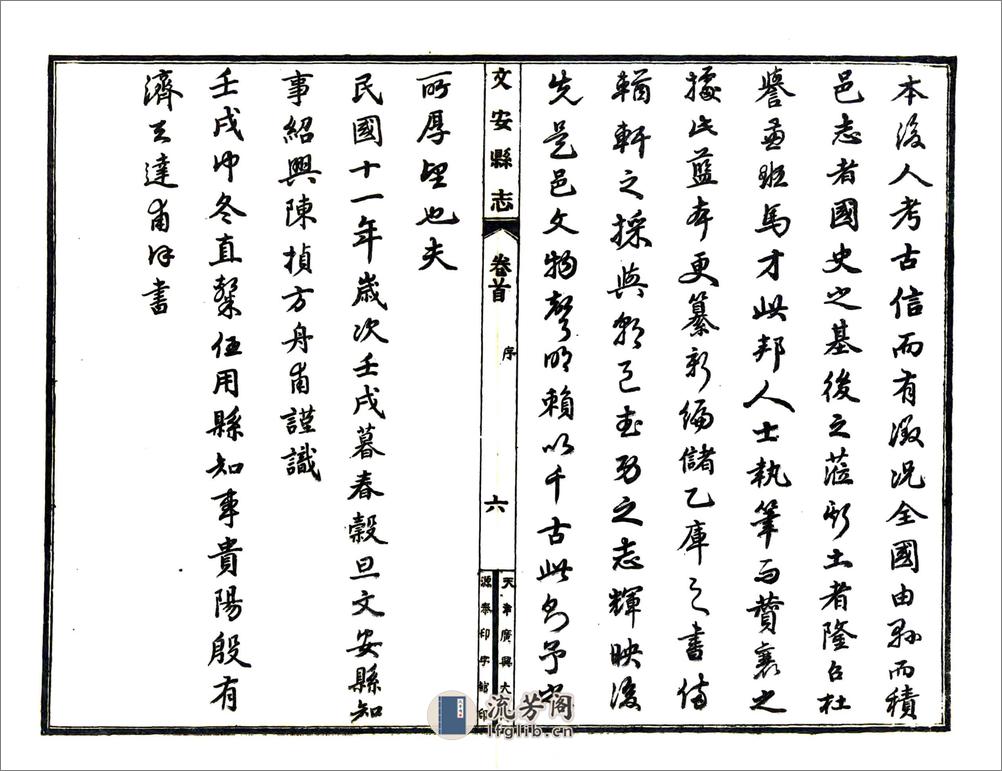 本後人考古信而有徵況全國由縣而積
邑志者國史之基後之蒞斯土者隆召杜
譽班馬才此邦人士執筆而贊襄之
據此藍本更纂新編儲乙庫之書備
輶軒之採與朝邑武功之志輝映後
先是邑文物聲明賴以千古此則予
文安縣志
卷首
序
六
天津廣興大
源泰印字館印
所厚望也夫
民國十一年歲次壬戌暮春穀旦文安縣知
事紹興陳楨方舟甫謹識
壬戌仲冬直隸任用縣知事貴陽殷有
濟達甫書
流芳阁
lfglib.cn